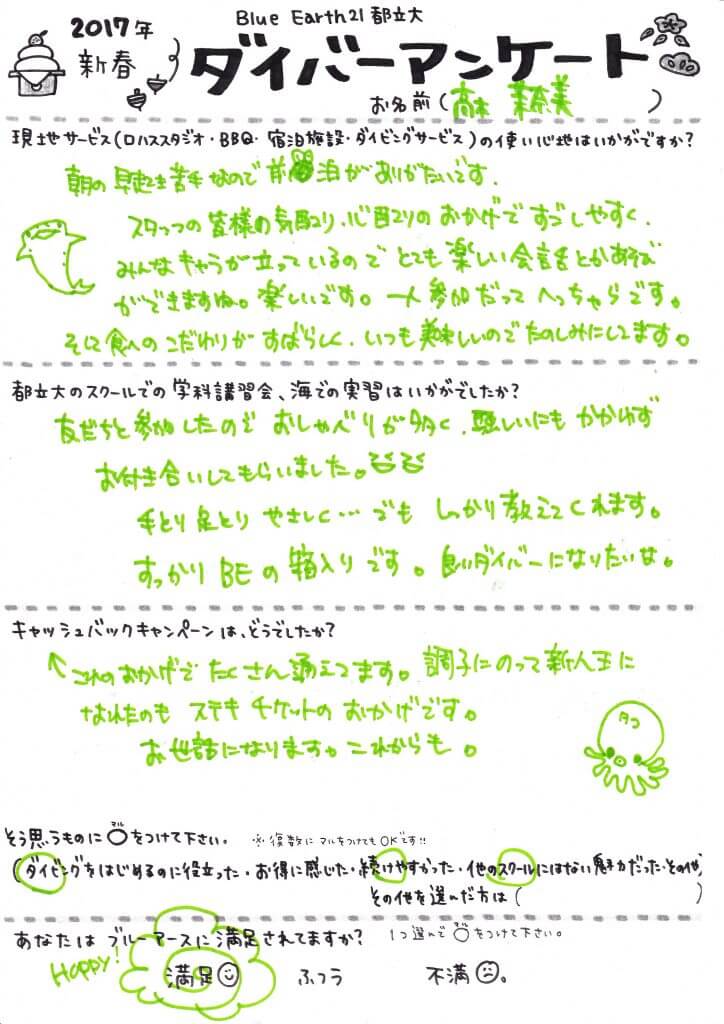 Blue Earth21 都立大
2017年
新春
ダイバーアンケート
お名前(高木 茉奈美)
現地サービス(ロハススタジオ・BBQ・宿泊施設・ダイビングサービス)の使い心地はいかがですか?
朝の早起き苦手なので前泊がありがたいです.
スタッフの皆様の気配り、心配りのおかげですごしやすく、
みんなキャラが立っているのでとても楽しい会話とかあそび
ができますね。楽しいです。一人参加だってへっちゃらです。
そして食へのこだわりがすばらしく、いつも美味しいのでたのしみにしてます。
都立大のスクールでの学科講習会、海での実習はいかがでしたか?
友だちと参加したのでおしゃべりが多く、騒しいにもかかわず
お付き合いしてもらいました。
手とり足とりやさしく…でもしっかり教えてくれます。
すっかりBEの箱入りです。良いダイバーになりたいな。
キャッシュバックキャンペーンは、どうでしたか?
↖これのおかげでたくさん通えてます。調子にのって新人王に
なれたのもステキチケットのおかげです。
お世話になります。これからも。
タコ
そう思うものに○をつけて下さい。 ※復数にマルをつけてもOKです!!
マル
(ダイビングをはじめるのに役立った・お得に感じた・続けやすかった・他のスクールにはない魅力だった・その他)
その他を選んだ方は( )
あなたはブルーアースに満足されてますか? 1つ選んで○をつけて下さい。
HAPPY!
満足 ふつう 不満。